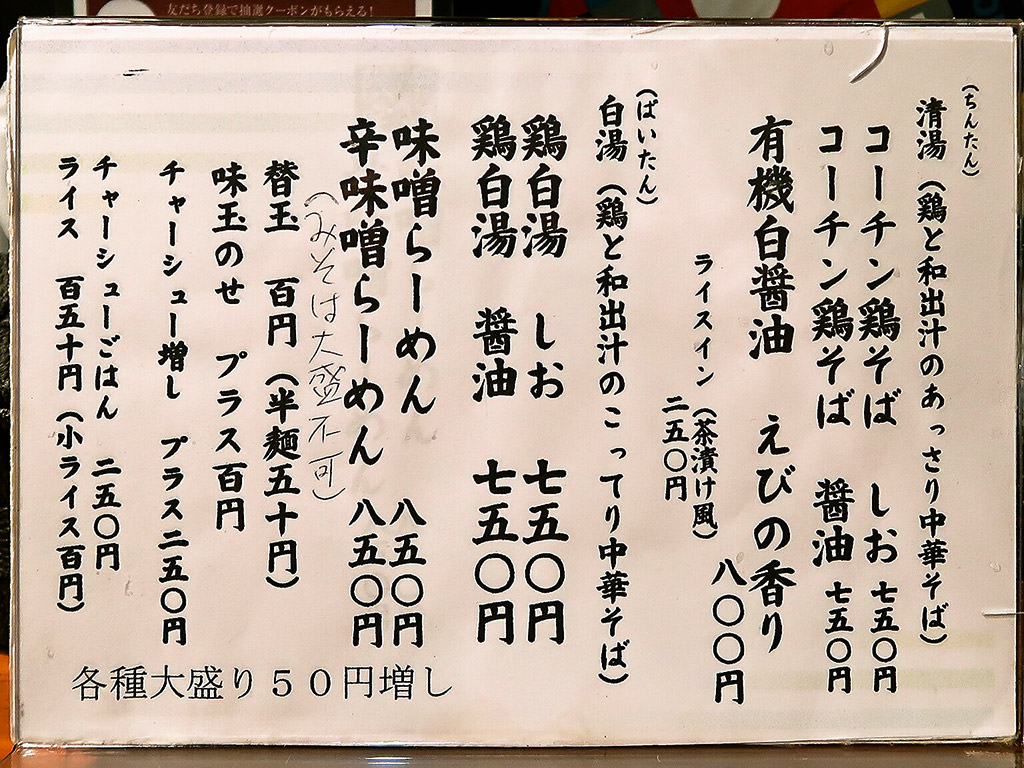 友だち登録で抽選クーポンがもらえる!
(ちんたん)
清湯(鶏と和出汁のあっさり中華そば)
コーチン鶏そば しお 七五〇円
コーチン鶏そば 醤油 七五〇円
有機白醤油 えびの香り
八〇〇円
ライスイン(茶漬け風)
二五〇円
(ばいたん)
白湯(鶏と和出汁のこってり中華そば)
鶏白湯 しお 七五〇円
鶏白湯 醤油 七五〇円
味噌らーめん 八五〇円
辛味噌らーめん 八五〇円
(みそは大盛不可)
替玉 百円(半麺五十円)
味玉のせ プラス百円
チャーシュー増し プラス二五〇円
チャーシューごはん 二五〇円
ライス 百五十円(小ライス百円)
各種大盛り50円増し